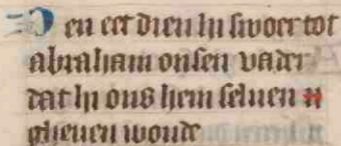 Den eet dien hi swoer tot
abraham onsen vader
dat hi ons hem seluen
gheuen woude